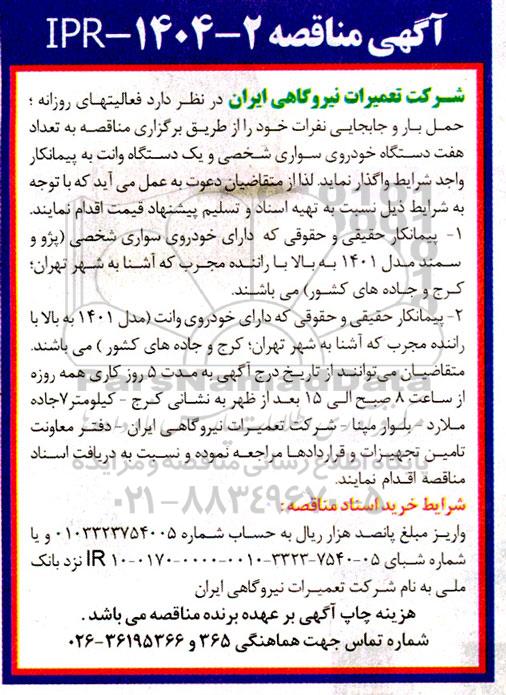 آگهی مناقصه IPR-۱۴۰۴-۲
شرکت تعمیرات نیروگاهی ایران در نظر دارد فعالیتهای روزانه ؛
حمل بار و جابجایی نفرات خود را از طریق برگزاری مناقصه به تعداد
هفت دستگاه خودروی سواری شخصی و یک دستگاه وانت به پیمانکار
واجد شرایط واگذار نماید. لذا از متقاضیان دعوت به عمل می آید که با توجه
به شرایط ذیل نسبت به تهیه اسناد و تسلیم پیشنهاد قیمت اقدام نمایند.
۱- پیمانکار حقیقی و حقوقی که دارای خودروی سواری شخصی (پژو و
سمند مدل ۱۴۰۱ به بالا با راننده مجرب که آشنا به شهر تهران؛
کرج و جاده های کشور) می باشند.
۲- پیمانکار حقیقی و حقوقی که دارای خودروی وانت (مدل ۱۴۰۱ به بالا با
راننده مجرب که آشنا به شهر تهران؛ کرج و جاده های کشور ) می باشند.
متقاضیان می‌توانند از تاریخ درج آگهی به مدت ۵ روز کاری همه روزه
از ساعت ۸ صبح الی ۱۵ بعد از ظهر به نشانی کرج - کیلومتر۷جاده
ملارد - بلوار مپنا - شرکت تعمیرات نیروگاهی ایران - دفتر معاونت
تامین تجهیزات و قراردادها مراجعه نموده و نسبت به دریافت اسناد
مناقصه اقدام نمایند.
شرایط خرید اسناد مناقصه:
واریز مبلغ پانصد هزار ریال به حساب شماره ۰۱۰۳۳۲۳۷۵۴۰۰۵ و یا
شماره شبای IR ۱۰-۰۱۷۰-۰۰۰۰-۰۰۱۰-۳۳۲۳-۷۵۴۰-۰۵ نزد بانک
ملی به نام شرکت تعمیرات نیروگاهی ایران
هزینه چاپ آگهی بر عهده برنده مناقصه می باشد .
شماره تماس جهت هماهنگی ۳۶۵ و ۳۶۱۹۵۳۶۶-۰۲۶
ParsNamadData
پایگاه اطلاع رسانی مناقصه و مزایده
۰۲۱-۸۸۳۴۹۶۷۰-۵